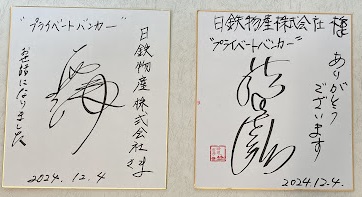 "プライベートバンカー"
日鉄物産株式会社さま
お世話になりました
2024.12.4
日鉄物産株式会社 様
"プライベートバンカー"
ありがとう
ございます
2024.12.4.